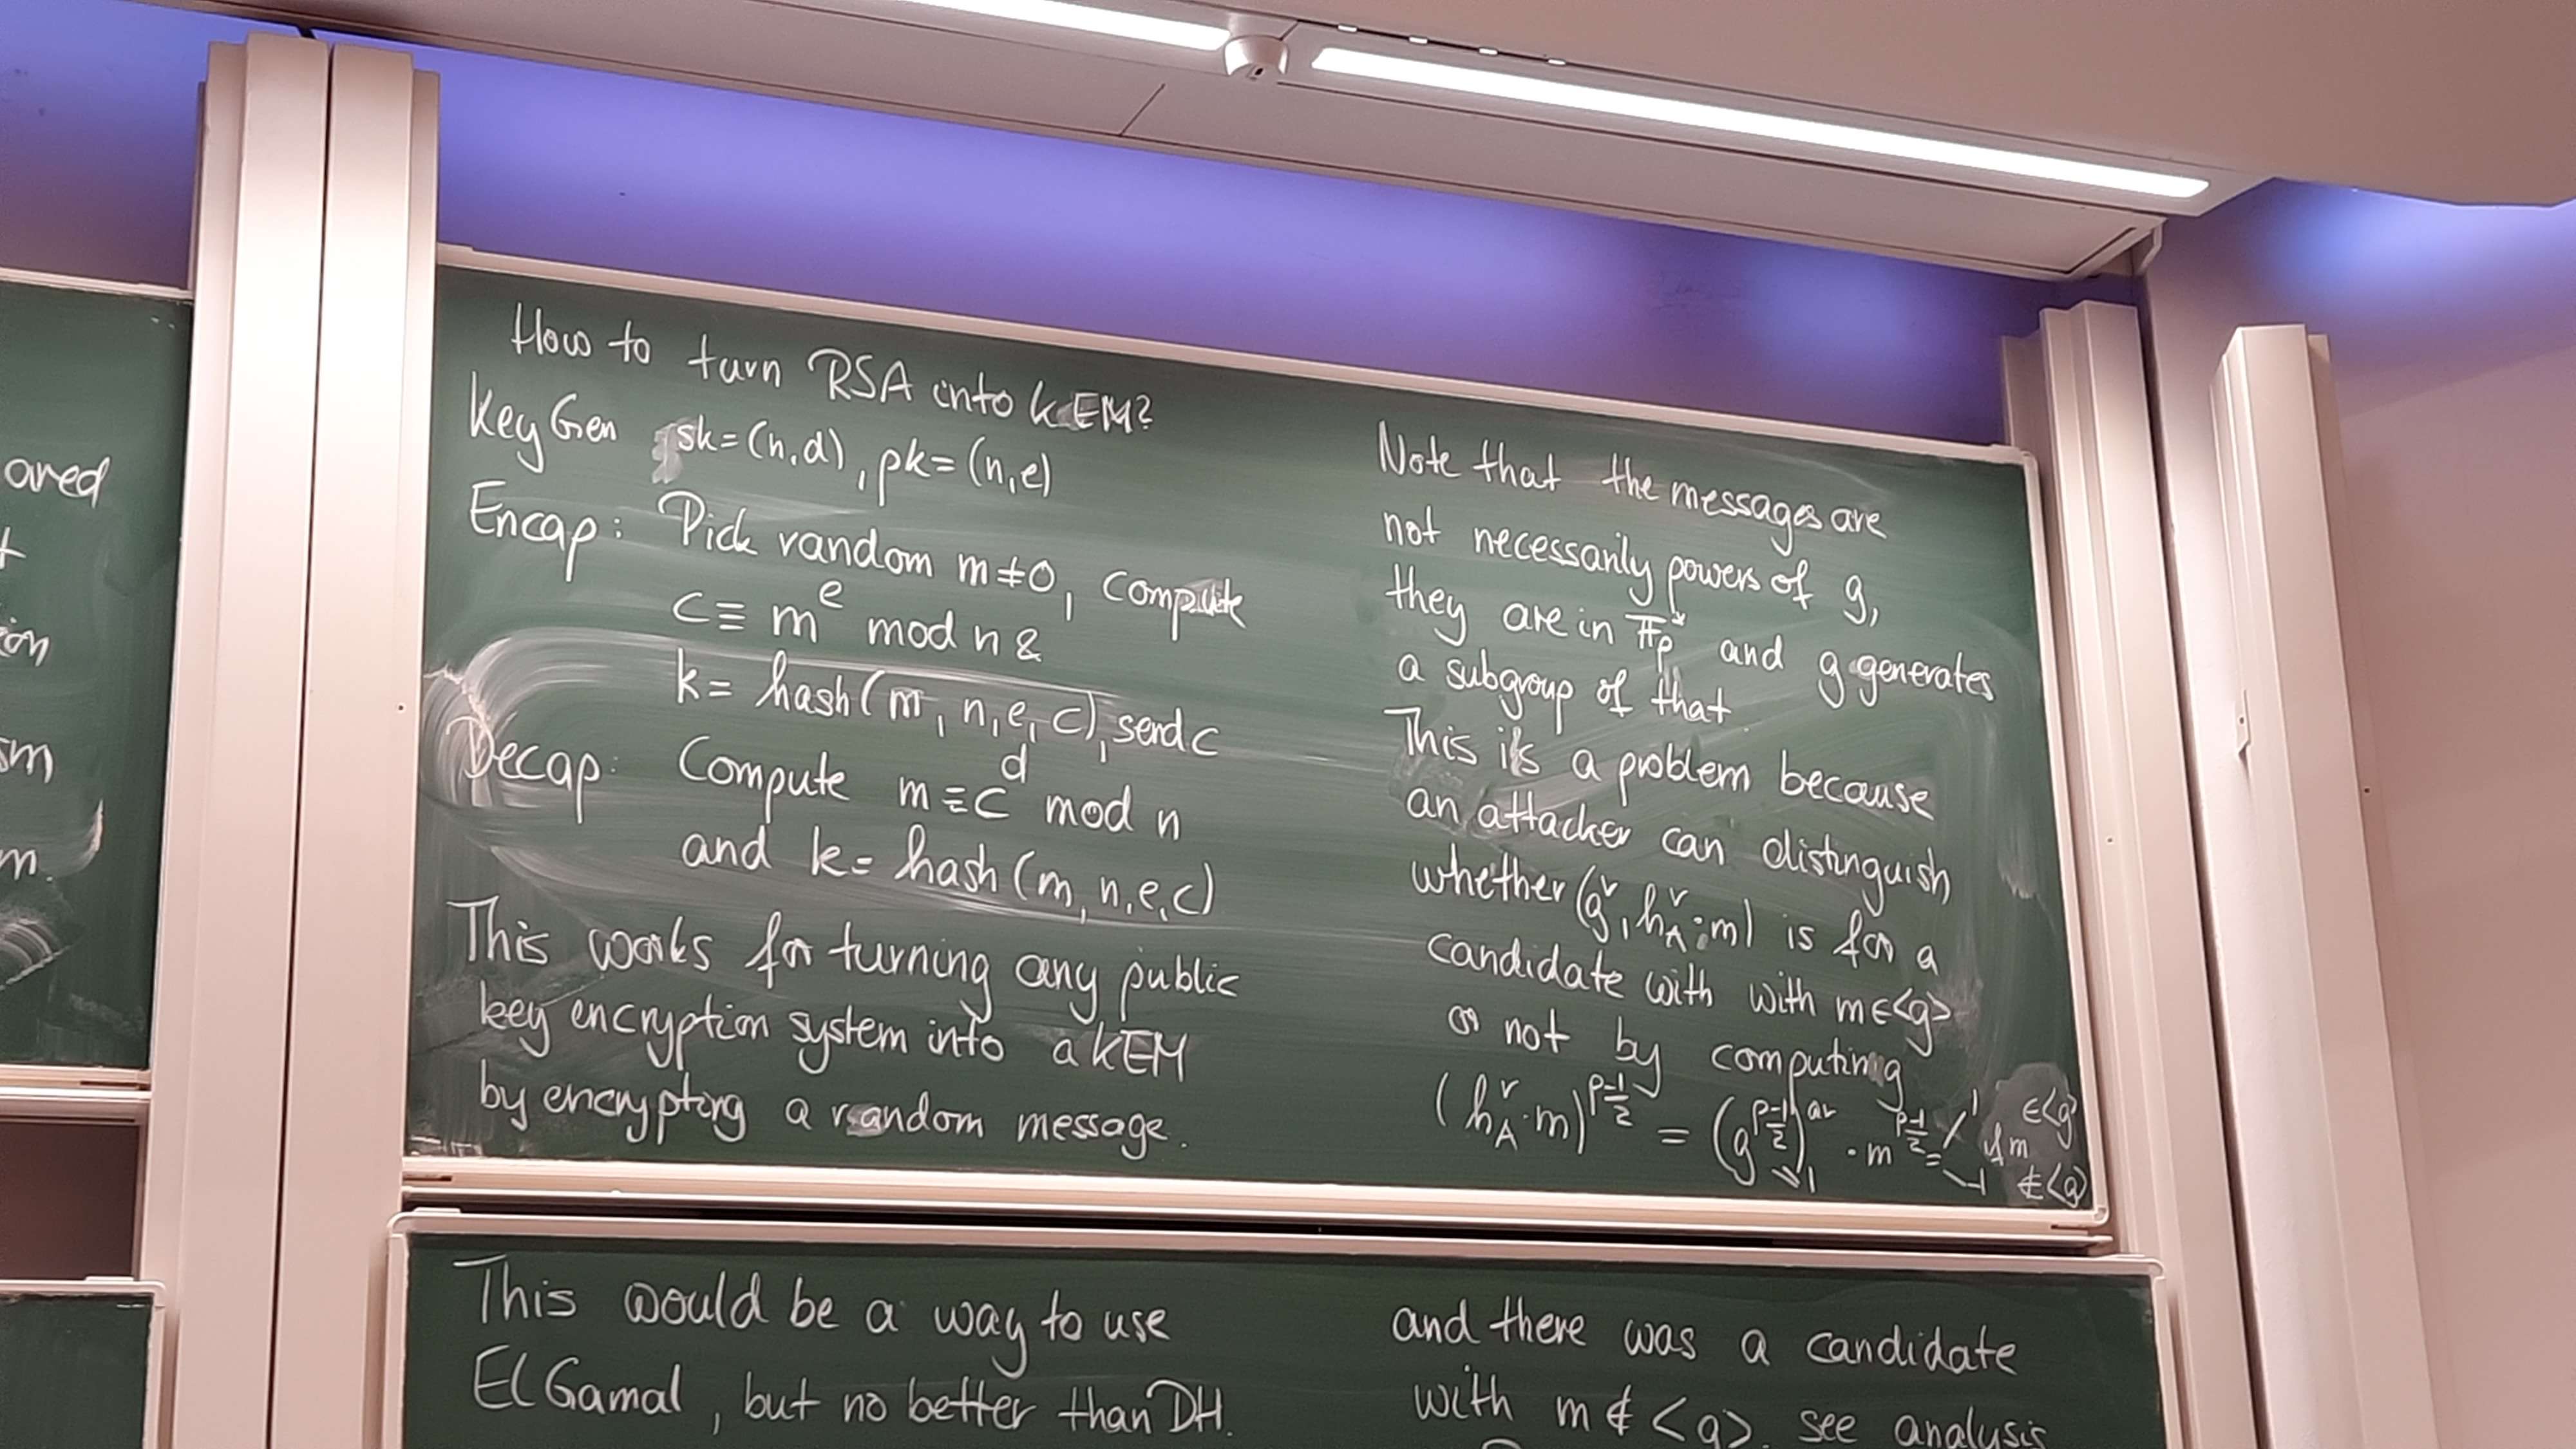 ared
ion
sm
m.
How to turn RSA into KEM?
KeyGen sk=(n,d), pk=(n,e)
Encap: Pick random m≠0, compute
c≡ m^e mod n &
k= hash(m, n, e, c), send c
Decap: Compute m≡c^d mod n
and k= hash(m, n, e, c)
This works for turning any public
key encryption system into a KEM
by encrypting a random message.
Note that the messages are
not necessarily powers of g,
they are in F_p^* and g generates
a subgroup of that
This is a problem because
an attacker can distinguish
whether (g^r, h_A^r·m) is for a
candidate with with m∈<g>
or not by computing
(h_A^r·m)^{(p-1)/2} = (g^{(p-1)/2})^{ar} · m^{(p-1)/2} = 1 if m ∈<g>
1 -1 ∉<g>
This would be a way to use
ElGamal, but no better than DH.
and there was a candidate
with m ∉ <g>, see analysis